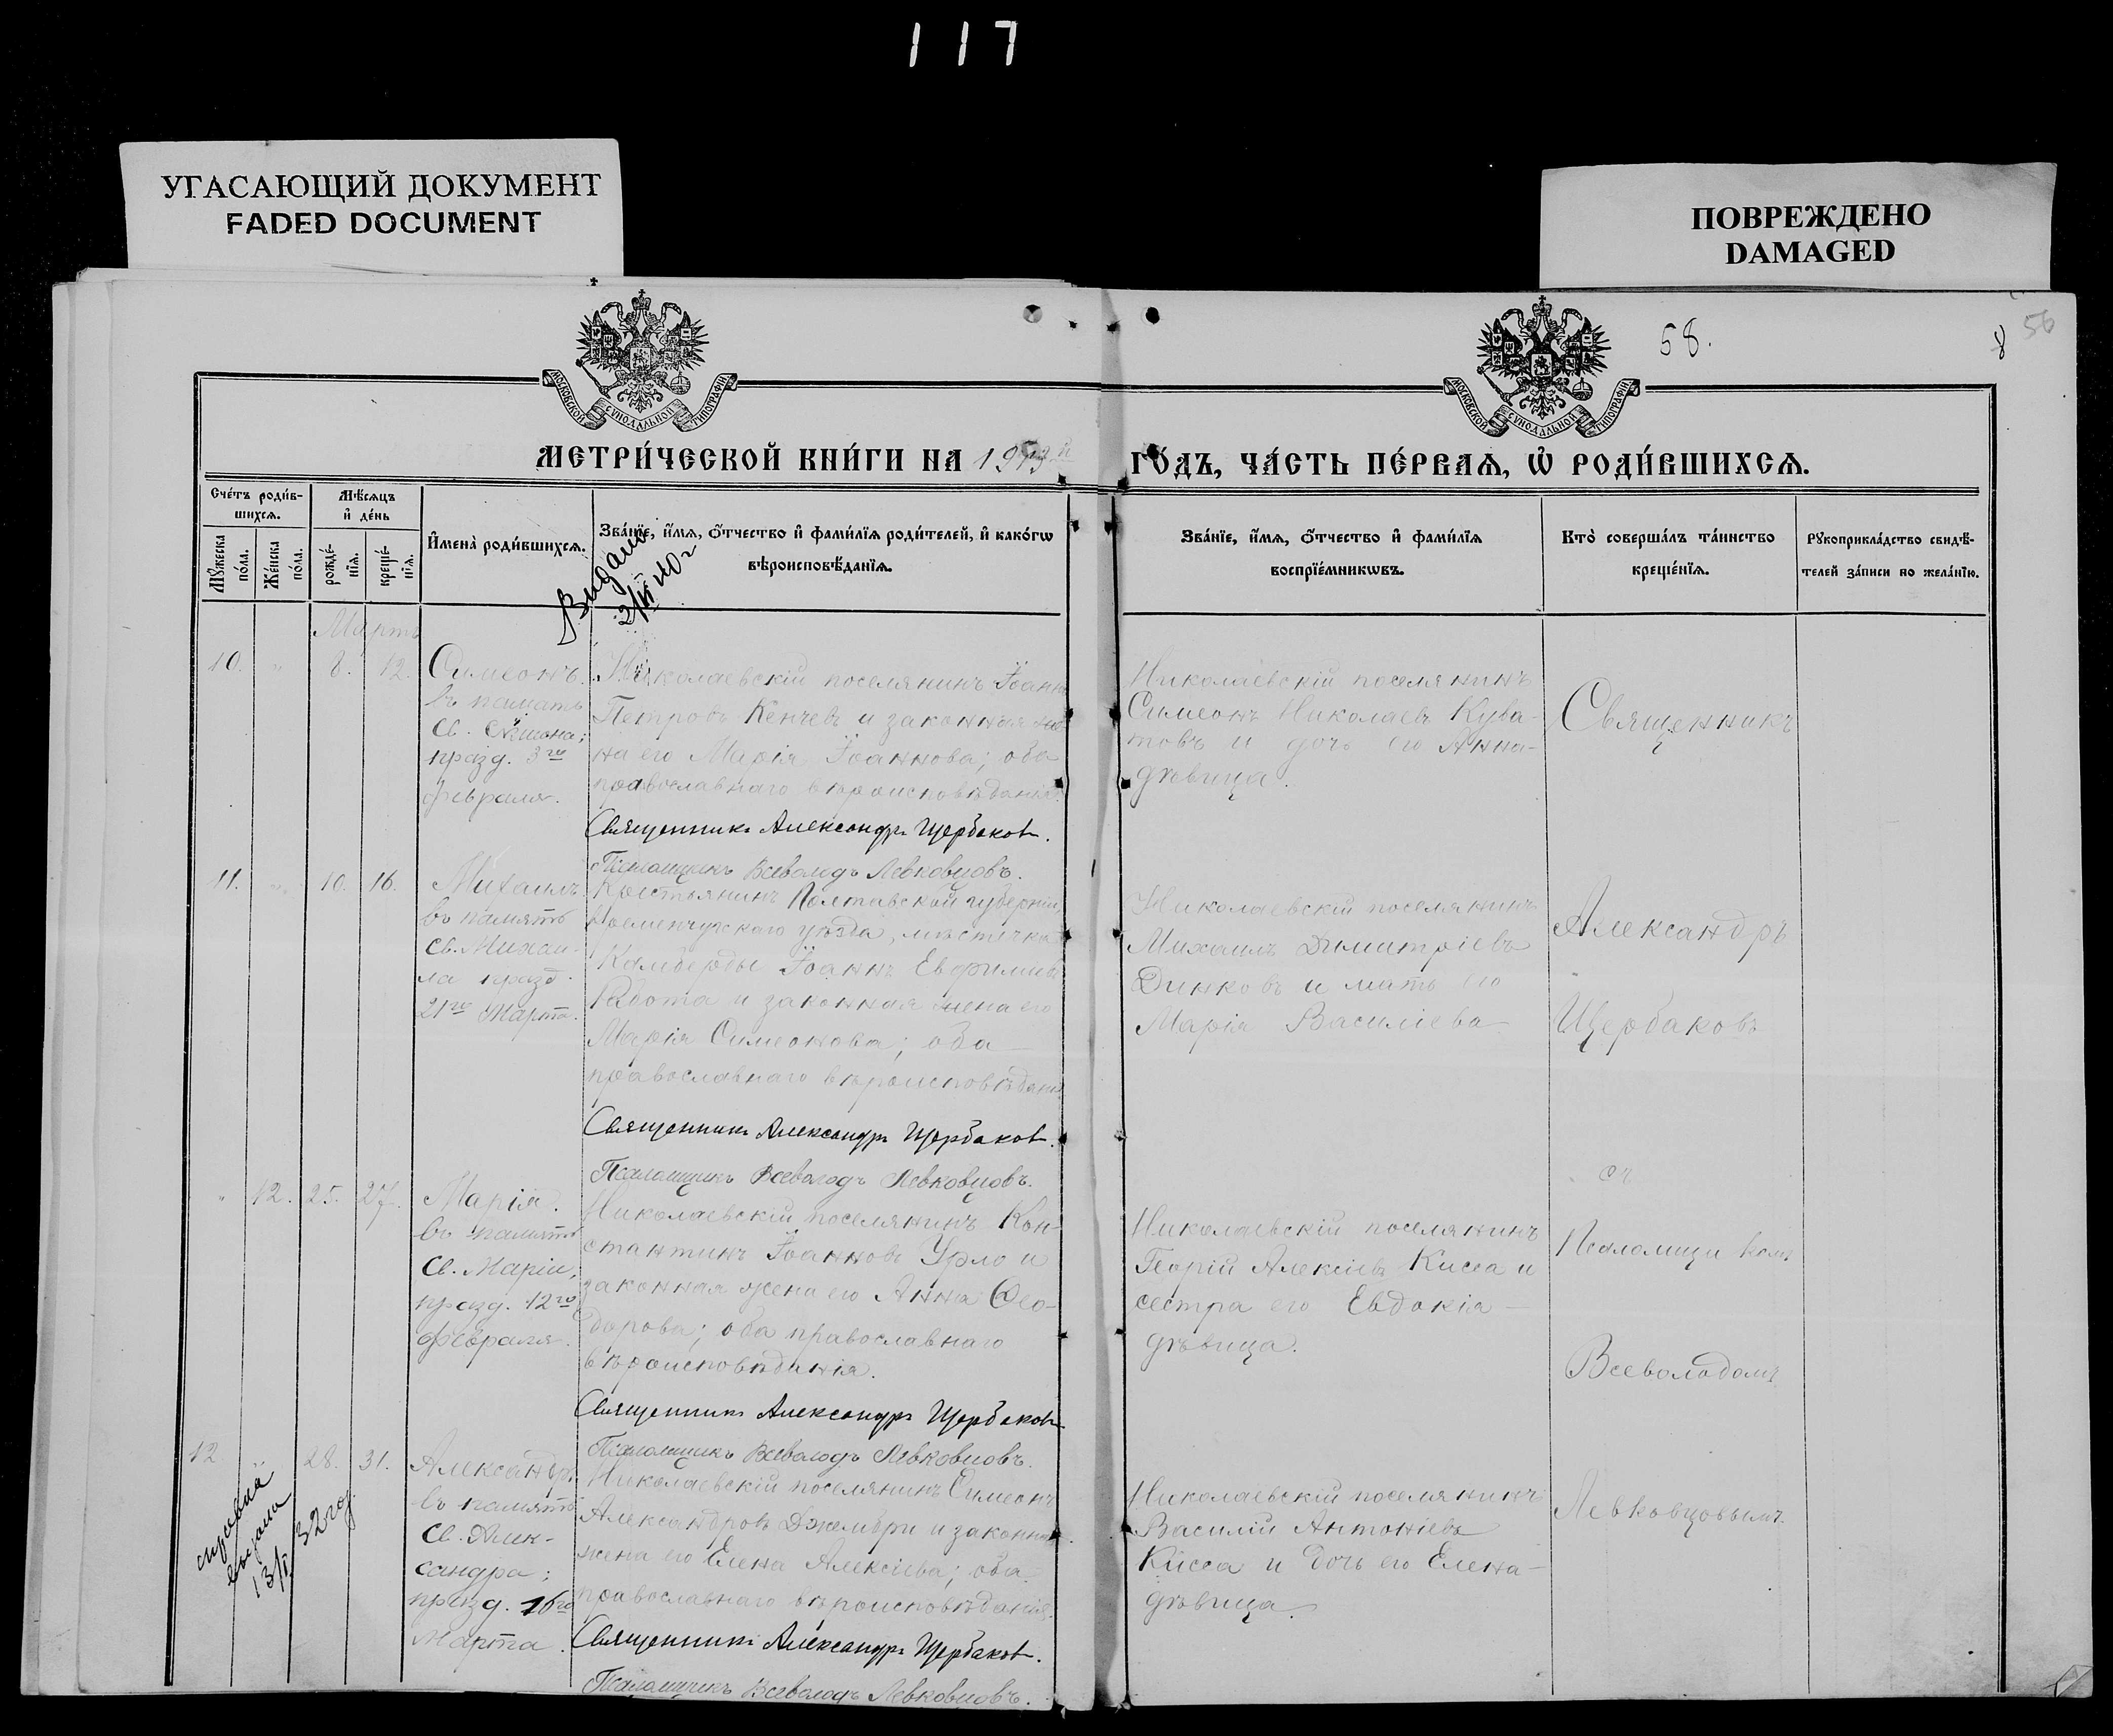 117
УГАСАЮЩИЙ ДОКУМЕНТ
FADED DOCUMENT
ПОВРЕЖДЕНО
DAMAGED
58.
8
56
МОСКОВСКОЙ СѴНОДАЛЬНОЙ ТИПОГРАФІИ
МОСКОВСКОЙ СѴНОДАЛЬНОЙ ТИПОГРАФІИ
МЕТРИ́ЧЕСКОЙ КНИ́ГИ НА
ГО́ДЪ, ЧА́СТЬ ПЕ́РВАѦ, Ѡ҆ РОДИ́ВШИХСѦ.
Сче́тъ роди́в-
шихсѧ.
Мꙋ́жеска по́ла.
Же́нска по́ла.
Мѣ́сѧцъ
и҆ де́нь
рожде́-
нїѧ.
креще́-
нїѧ.
И҆мена̀ роди́вшихсѧ.
Зва́нїе, и҆́мѧ, ѻ҆́тчество и҆ фами́лїѧ роди́телей, и҆ како́гѡ
вѣроисповѣ́данїѧ.
Зва́нїе, и҆́мѧ, ѻ҆́тчество и҆ фами́лїѧ
воспрїе́мникѡвъ.
Кто̀ соверша́лъ та́инство
креще́нїѧ.
Рꙋкоприкла́дство свидѣ́-
телей за́писи по жела́нїю.
Мартъ
10. „ 8. 12.
Симеонъ.
въ память
Св. Симеона;
празд. 3го
февраля.
Николаевскій поселянинъ Іоаннъ
Петровъ Кенчевъ и законная же-
на его Марія Іоаннова; оба
православнаго вѣроисповѣданія.
Священникъ Александръ Щербаковъ.
Псаломщикъ Всеволодъ Левковцовъ.
Николаевскій поселянинъ
Симеонъ Николаевъ Кува-
товъ и дочь его Анна-
дѣвица.
Священникъ
11. „ 10. 16.
Михаилъ
въ память
Св. Михаи-
ла празд.
21го Марта.
Крестьянинъ Полтавской губерніи,
Кременчугскаго уѣзда, мѣстечка
Іоаннъ
и законная жена его
Марія Симеонова; оба
православнаго вѣроисповѣданія
Священникъ Александръ Щербаковъ.
Псаломщикъ Всеволодъ Левковцовъ.
Николаевскій поселянинъ
Михаилъ Димитріевъ
Динковъ и мать его
Марія Василіева.
Александръ
Щербаковъ
„ 12. 25. 27.
Марія.
въ память
Св. Маріи,
празд. 12го
февраля.
Николаевскій поселянинъ Кон-
стантинъ Іоанновъ и
законная жена его Анна Ѳео-
дорова; оба православнаго
вѣроисповѣданія.
Священникъ Александръ Щербаковъ
Псаломщикъ Всеволодъ Левковцовъ.
Николаевскій поселянинъ
Георгій Алексіевъ Кисса и
сестра его Евдокія —
дѣвица.
съ
Псаломщикомъ
Всеволодомъ
12 „ 28. 31.
Александръ
въ память
Св. Алек-
сандра;
празд. 16го
Марта.
Николаевскій поселянинъ Симеонъ
Александровъ и законная
жена его Елена Алексіева; оба
православнаго вѣроисповѣданія.
Священникъ Александръ Щербаковъ.
Псаломщикъ Всеволодъ Левковцовъ.
Николаевскій поселянинъ
Василій Антоніевъ
Кисса и дочь его Елена-
дѣвица.
Левковцовымъ.